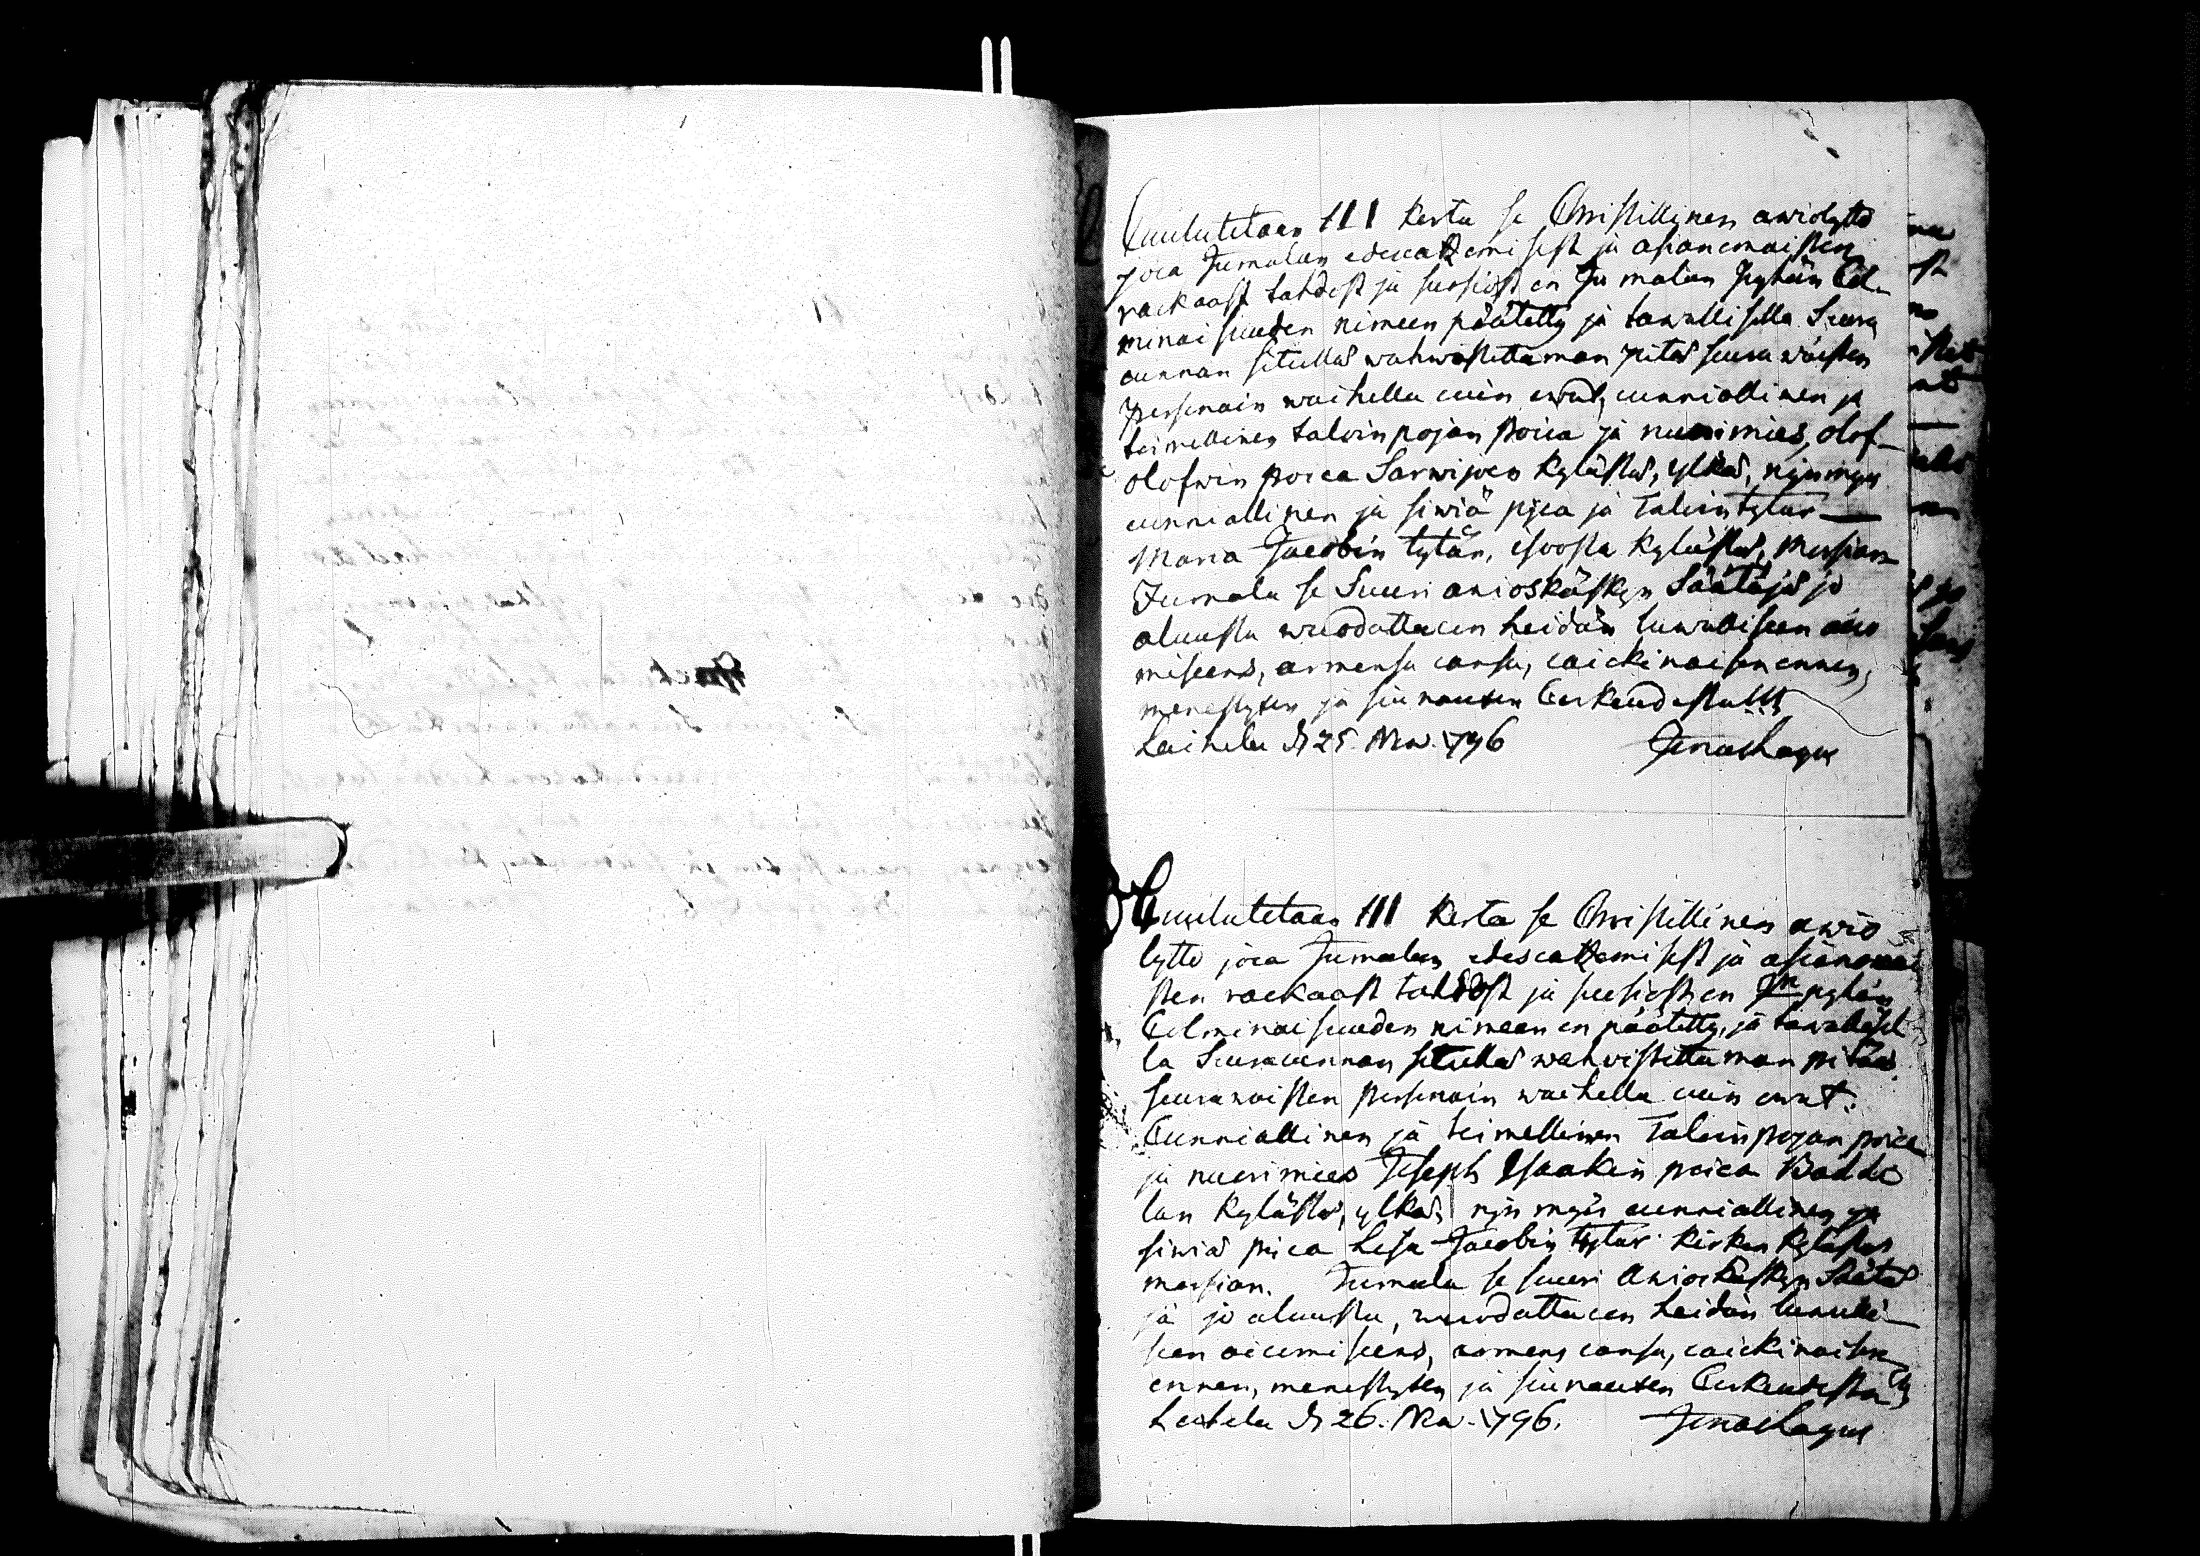 Cuulutetaan III kerta se Christillinen awiolytto
joca Jumalan edescatzemisest ja asianomaisten
rackaast tahdost ja suosiost on Jumalan Pyhän Col-
minaisuuden nimeen päätetty ja tawallisella Seura
cunnan situllas wahwistettaman pitäs seurawaisten
Personain waihella cuin owat, cunniallinen ja
toimellinen taloinpojan poica ja nuorimies, olof-
olofwin poica Sarwijoen kyläsläs, ylkäs, nijn myös
cunniallinen ja siwiä pijca ja Taloin tytär—
Maria Jacobin tytär, isosta kylästä, morsian
Jumala se Suuri awioskäskyn Säätäjä jo
aluusta wuodattacon heidän luwalliseen aico
miseens, armonsa cansa, caickinaisen onnen,
menestyxen ja siunauxen Corkeudesta!!!
Laihela d 25. Nov. 1796 Jonas Lagus
Cuulutetaan III kerta se Christillinen awio
lytto joca Jumalan edescatzemisest ja asianomai
sten rackaast tahdost ja suosiost on Jn pyhän
Colminaisuuden nimeen on päätetty, ja tawallisel
la Seuracunnan situllas wahwistettaman pitäs
seurawaisten Personain waihella cuin owat.
Cunniallinen ja toimellinen Taloinpojan poica
ja nuorimies Joseph Isaakin poica Badde
lan kylästä, ylkäs nijn myös cunniallinen ja
siwiä pica Lisa Jacobin tytär kirkon kylästäs
morsian. Jumala se suuri Awioskäskyn Säätä
jä jo aluusta, wuodattacon heidän luwalli-
seen aicomiseens, armons cansa, caickinaisen
onnen, menestyxen ja siunauxen Corkeudesta
Laihela d 26. Nov. 1796. Jonas Lagus